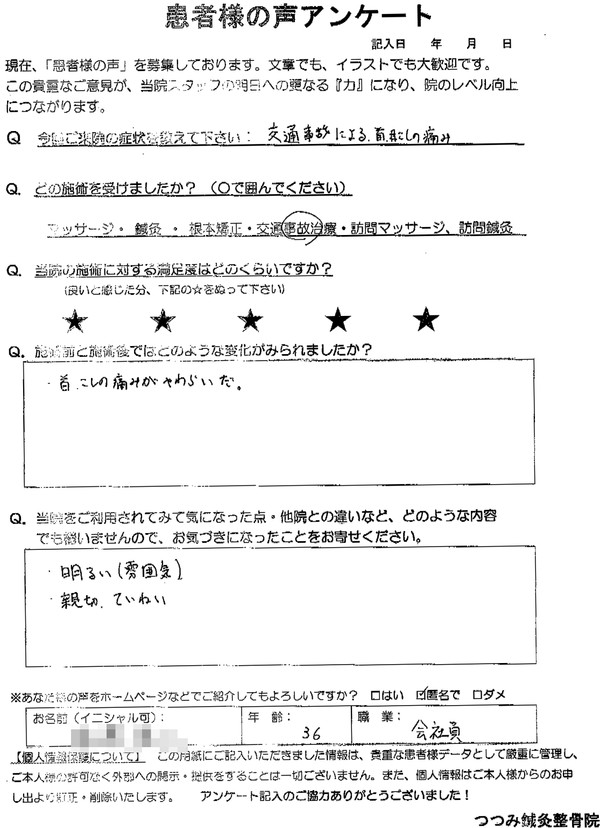 患者様の声アンケート
記入日　　年　　月　　日
現在、「患者様の声」を募集しております。文章でも、イラストでも大歓迎です。
この貴重なご意見が、当院スタッフの明日への更なる『力』になり、院のレベル向上
につながります。
Q 今回ご来院の症状を教えて下さい： 交通事故による、首、こしの痛み
Q. どの施術を受けましたか？（〇で囲んでください）
マッサージ・ 鍼灸 ・ 根本矯正・交通事故治療・訪問マッサージ、訪問鍼灸
Q. 当院の施術に対する満足度はどのくらいですか？
(良いと感じた分、下記の☆をぬって下さい)
★ ★ ★ ★ ★
Q. 施術前と施術後ではどのような変化がみられましたか？
・首、こしの痛みがやわらいだ。
Q. 当院をご利用されてみて気になった点・他院との違いなど、どのような内容
でも構いませんので、お気づきになったことをお寄せください。
・明るい(雰囲気)
・親切、ていねい
※あなた様の声をホームページなどでご紹介してもよろしいですか？ □はい ☑匿名で □ダメ
お名前（イニシャル可）： 年 齢： 36 職 業： 会社員
【個人情報保護について】 この用紙にご記入いただきました情報は、貴重な患者様データとして厳重に管理し、
ご本人様の許可なく外部への開示・提供をすることは一切ございません。また、個人情報はご本人様からのお申
し出より訂正・削除いたします。 アンケート記入のご協力ありがとうございました！
つつみ鍼灸整骨院